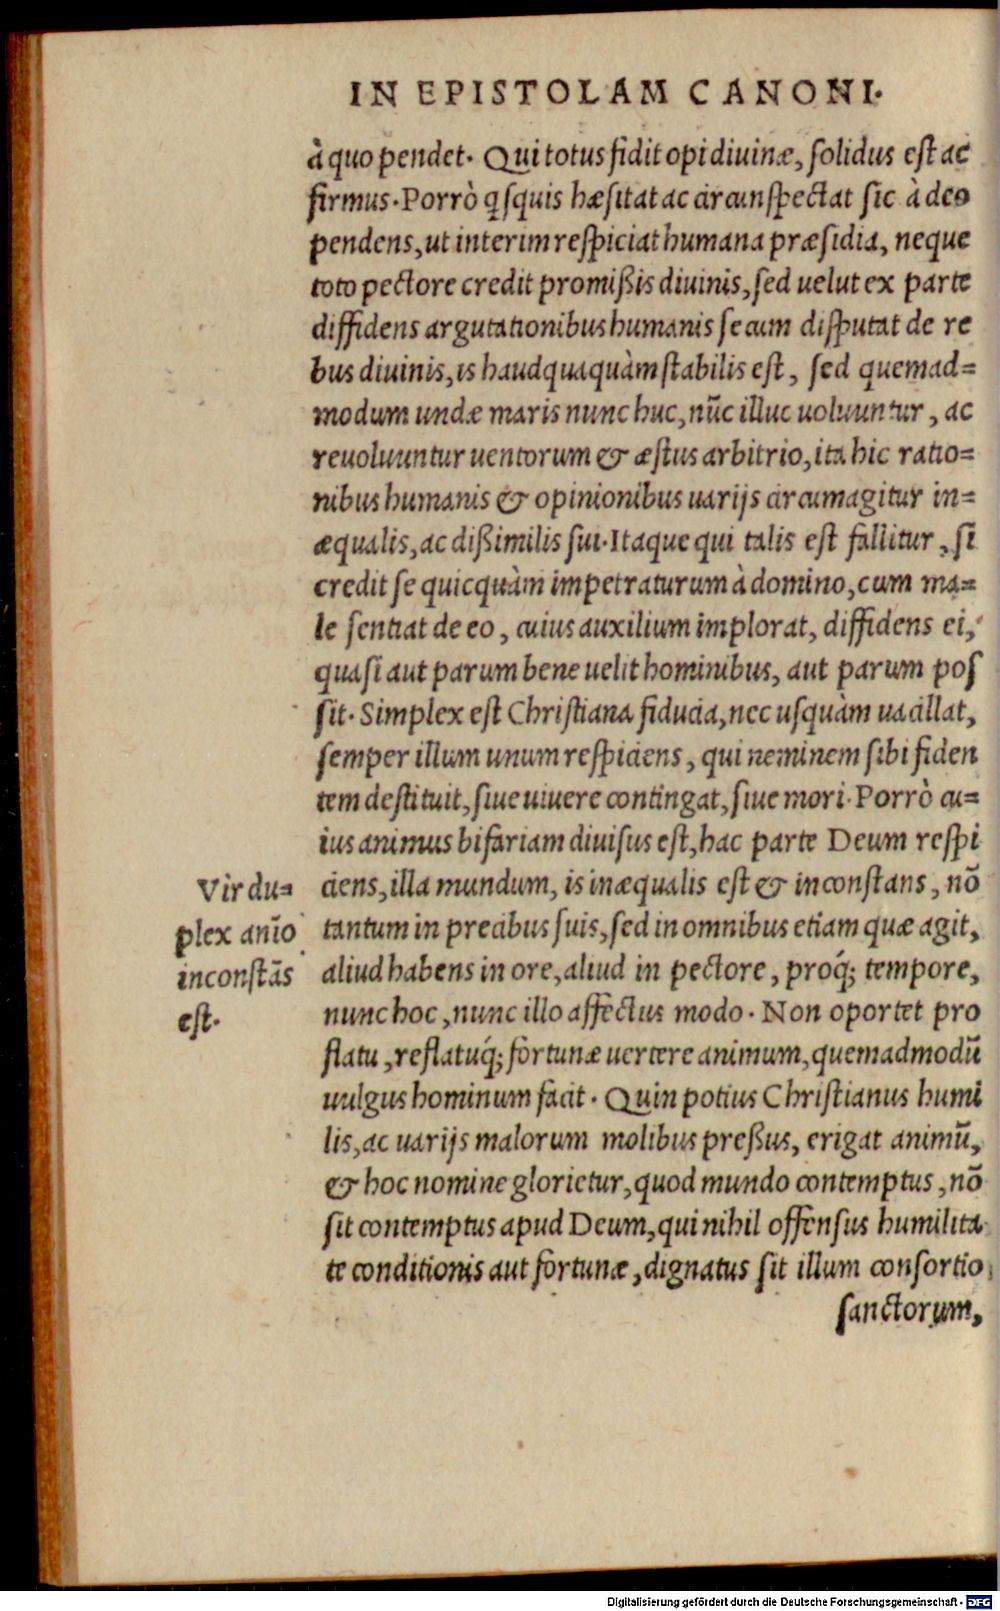 IN EPISTOLAM CANONI.
à quo pendet. Qui totus fidit opi diuinæ, ſolidus eſt ac
firmus. Porrò qſquis hæſitat ac circunſpectat ſic à deo
pendens, ut interim reſpiciat humana præſidia, neque
toto pectore credit promiſsis diuinis, ſed uelut ex parte
diffidens argutationibus humanis ſecum diſputat de re
bus diuinis, is haudquaquàm ſtabilis eſt, ſed quemad=
modum undæ maris nunc huc, nūc illuc uoluuntur, ac
reuoluuntur uentorum & æſtus arbitrio, ita hic ratio=
nibus humanis & opinionibus uarijs circumagitur in=
æqualis, ac diſsimilis ſui. Itaque qui talis eſt fallitur, ſi
credit ſe quicquàm impetraturum à domino, cum ma=
le ſentiat de eo, cuius auxilium implorat, diffidens ei,
quaſi aut parum bene uelit hominibus, aut parum poſ
ſit. Simplex eſt Chriſtiana fiducia, nec uſquàm uacillat,
ſemper illum unum reſpiciens, qui neminem ſibi fiden
tem deſtituit, ſiue uiuere contingat, ſiue mori. Porrò cu=
ius animus bifariam diuiſus eſt, hac parte Deum reſpi
ciens, illa mundum, is inæqualis eſt & inconſtans, nō
tantum in precibus ſuis, ſed in omnibus etiam quæ agit,
aliud habens in ore, aliud in pectore, proq́; tempore,
nunc hoc, nunc illo affectus modo. Non oportet pro
flatu, reflatuq́; fortunæ uertere animum, quemadmodū
uulgus hominum facit. Quin potius Chriſtianus humi
lis, ac uarijs malorum molibus preſsus, erigat animū,
& hoc nomine glorietur, quod mundo contemptus, nō
ſit contemptus apud Deum, qui nihil offenſus humilita
te conditionis aut fortunæ, dignatus ſit illum conſortio
ſanctorum,
Vir du=
plex anio
inconſtās
eſt.
Digitalisierung gefördert durch die Deutsche Forschungsgemeinschaft - DFG